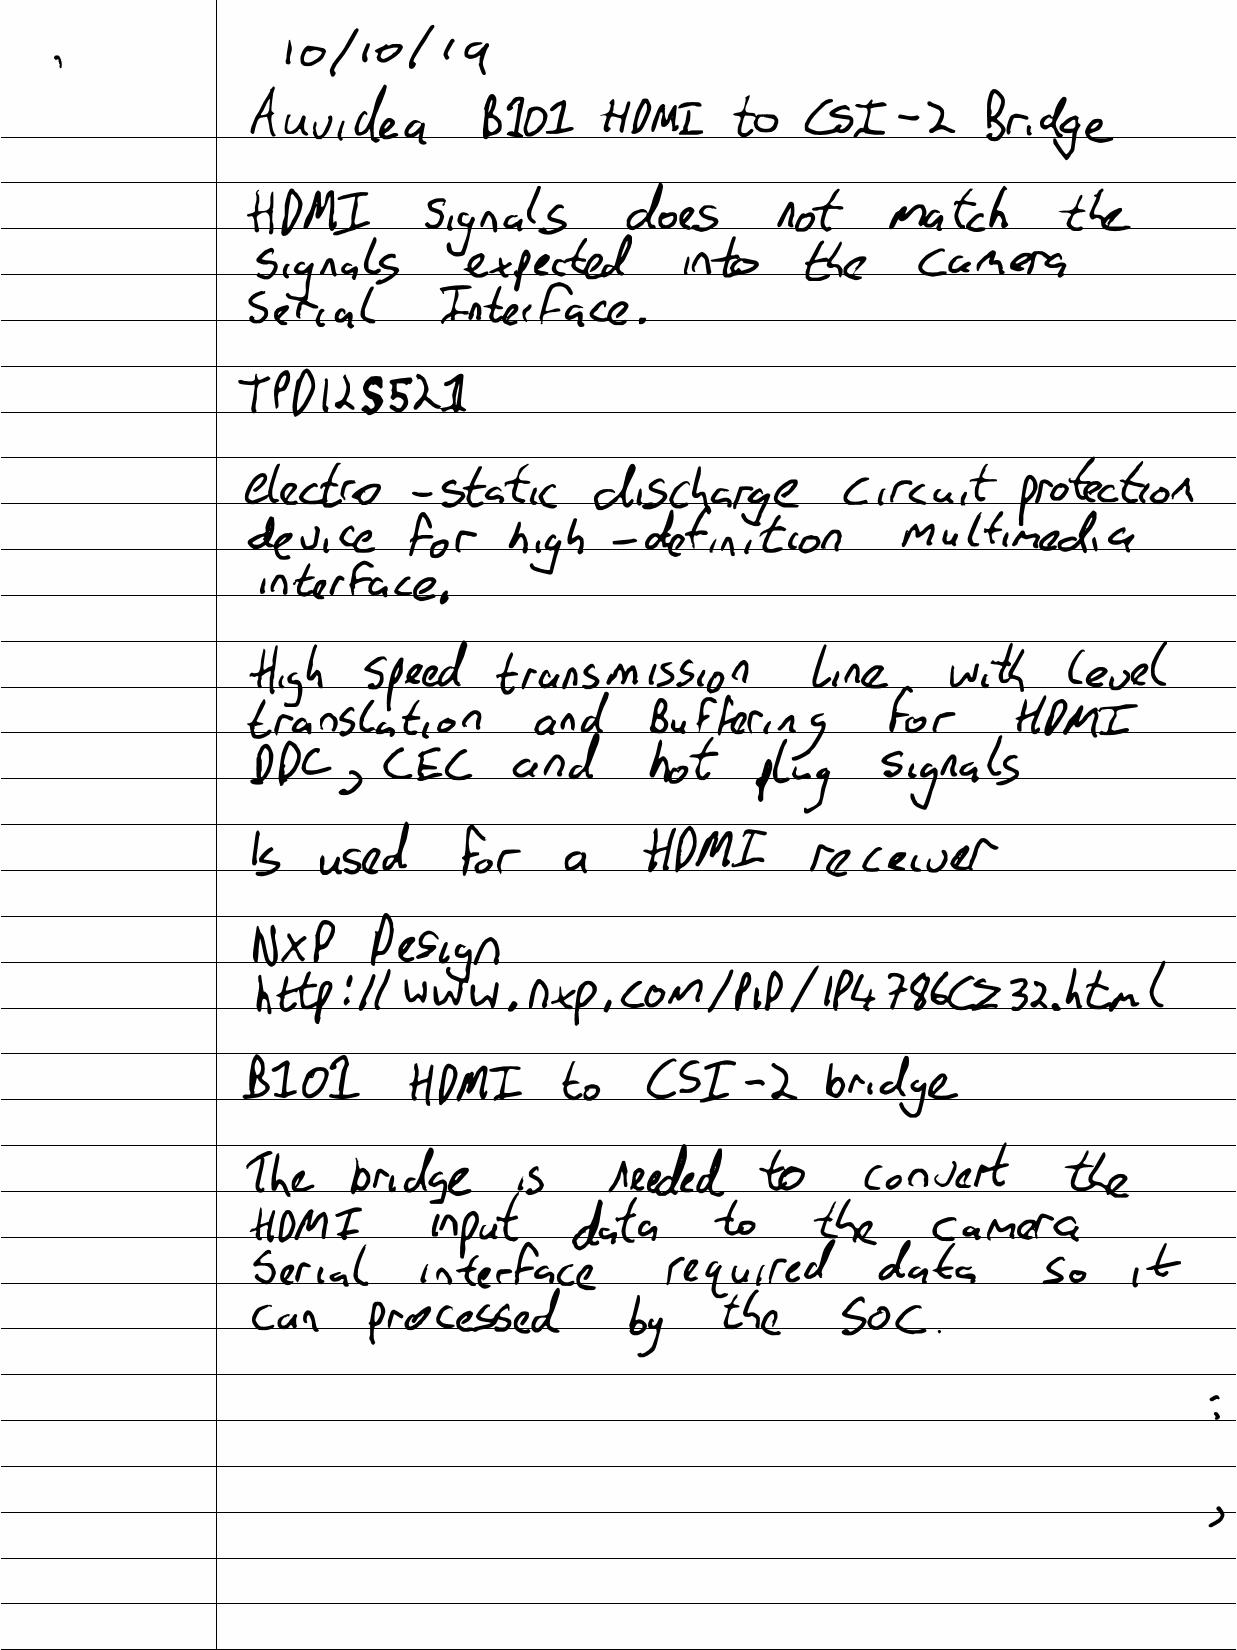 10/10/19
Auvidea B101 HDMI to CSI-2 Bridge
HDMI signals does not match the
signals expected into the camera
Serial Interface.
TPD12S521
electro-static discharge circuit protection
device for high-definition multimedia
interface.
High speed transmission line with level
translation and Buffering for HDMI
DDC, CEC and hot plug signals
Is used for a HDMI receiver
NXP Design
http://www.nxp.com/PIP/IP4786CZ32.html
B101 HDMI to CSI-2 bridge
The bridge is needed to convert the
HDMI input data to the camera
Serial interface required data so it
can processed by the SOC.